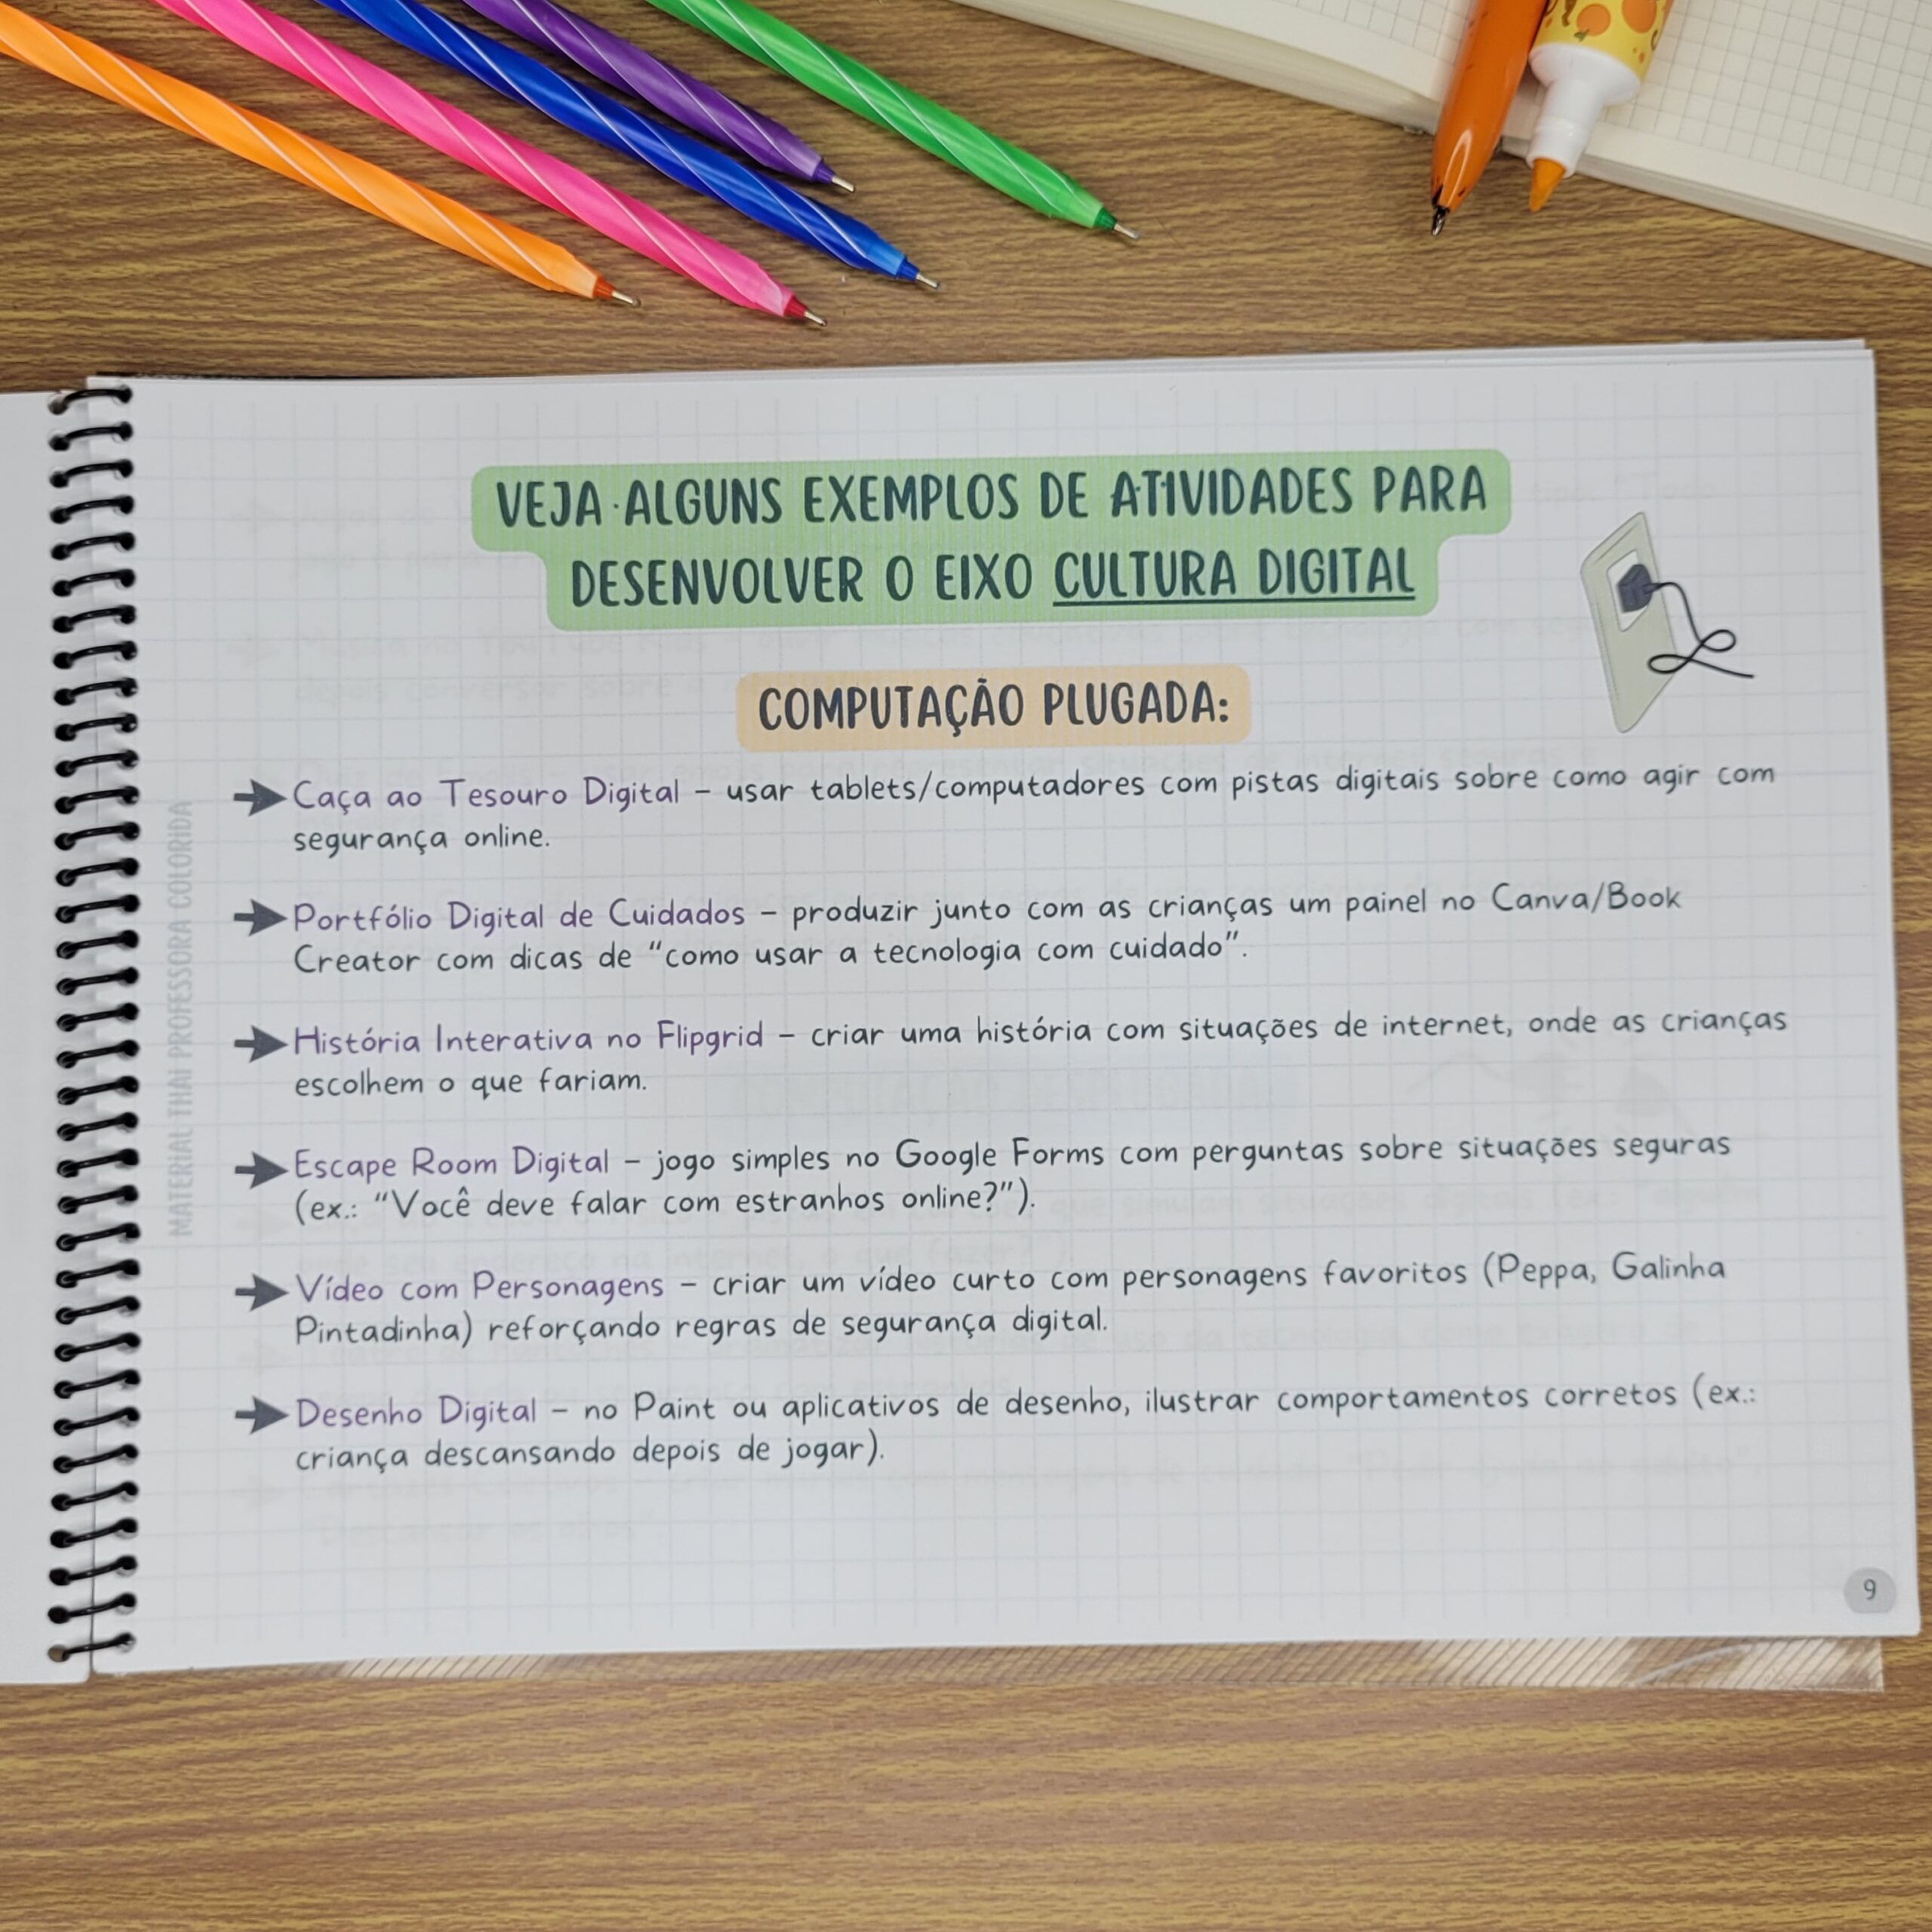 VEJA ALGUNS EXEMPLOS DE ATIVIDADES PARA
DESENVOLVER O EIXO CULTURA DIGITAL
COMPUTAÇÃO PLUGADA:
Caça ao Tesouro Digital – usar tablets/computadores com pistas digitais sobre como agir com
segurança online.
Portfólio Digital de Cuidados – produzir junto com as crianças um painel no Canva/Book
Creator com dicas de “como usar a tecnologia com cuidado”.
História Interativa no Flipgrid – criar uma história com situações de internet, onde as crianças
escolhem o que fariam.
Escape Room Digital – jogo simples no Google Forms com perguntas sobre situações seguras
(ex.: “Você deve falar com estranhos online?”).
Vídeo com Personagens – criar um vídeo curto com personagens favoritos (Peppa, Galinha
Pintadinha) reforçando regras de segurança digital.
Desenho Digital – no Paint ou aplicativos de desenho, ilustrar comportamentos corretos (ex.:
criança descansando depois de jogar).
MATERIAL THAI PROFESSORA COLORIDA
9